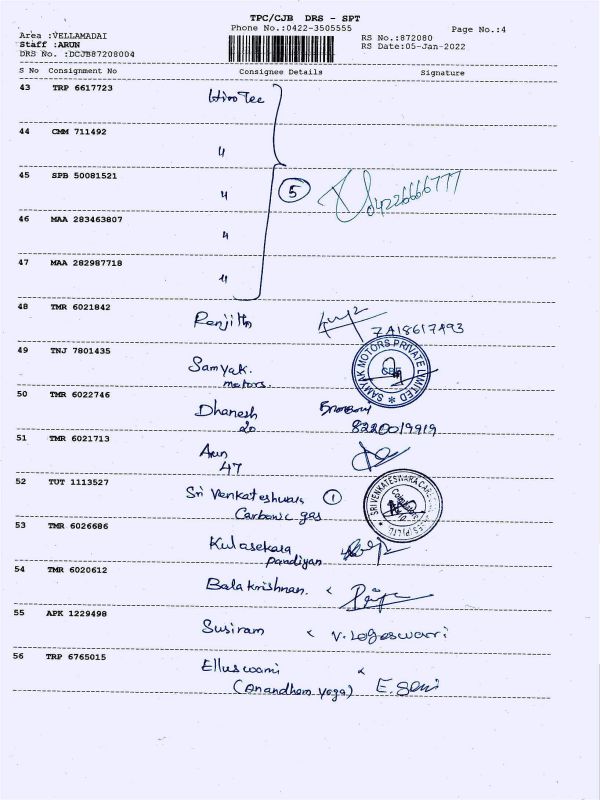 TPC/CJB DRS - SPT
Phone No.:0422-3505555 Page No.:4
Area :VELLAMADAI RS No.:872080
Staff :ARUN RS Date:05-Jan-2022
DRS No. :DCJB87208004
S No Consignment No Consignee Details Signature
43 TRP 6617723 Hiro Tec
44 CMM 711492 "
45 SPB 50081521 " 5 04226666777
46 MAA 283463807 "
47 MAA 282987718 "
48 TMR 6021842 Renjith
49 TNJ 7801435 Samyak. SAMYAK MOTORS PRIVATE LIMITED
motors. CBE
50 TMR 6022746 Dhanesh
20 8220019919
51 TMR 6021713 Arun
47
52 TUT 1113527 Sri Venkateshwara 1 SRI VENKATESWARA
Carbonic gas
53 TMR 6026686 Kulasekara
pandiyan
54 TMR 6020612 Balakrishnan.
55 APK 1229498 Susiram V. Logeswari
56 TRP 6765015 Elluswami
(Anandham yoga)